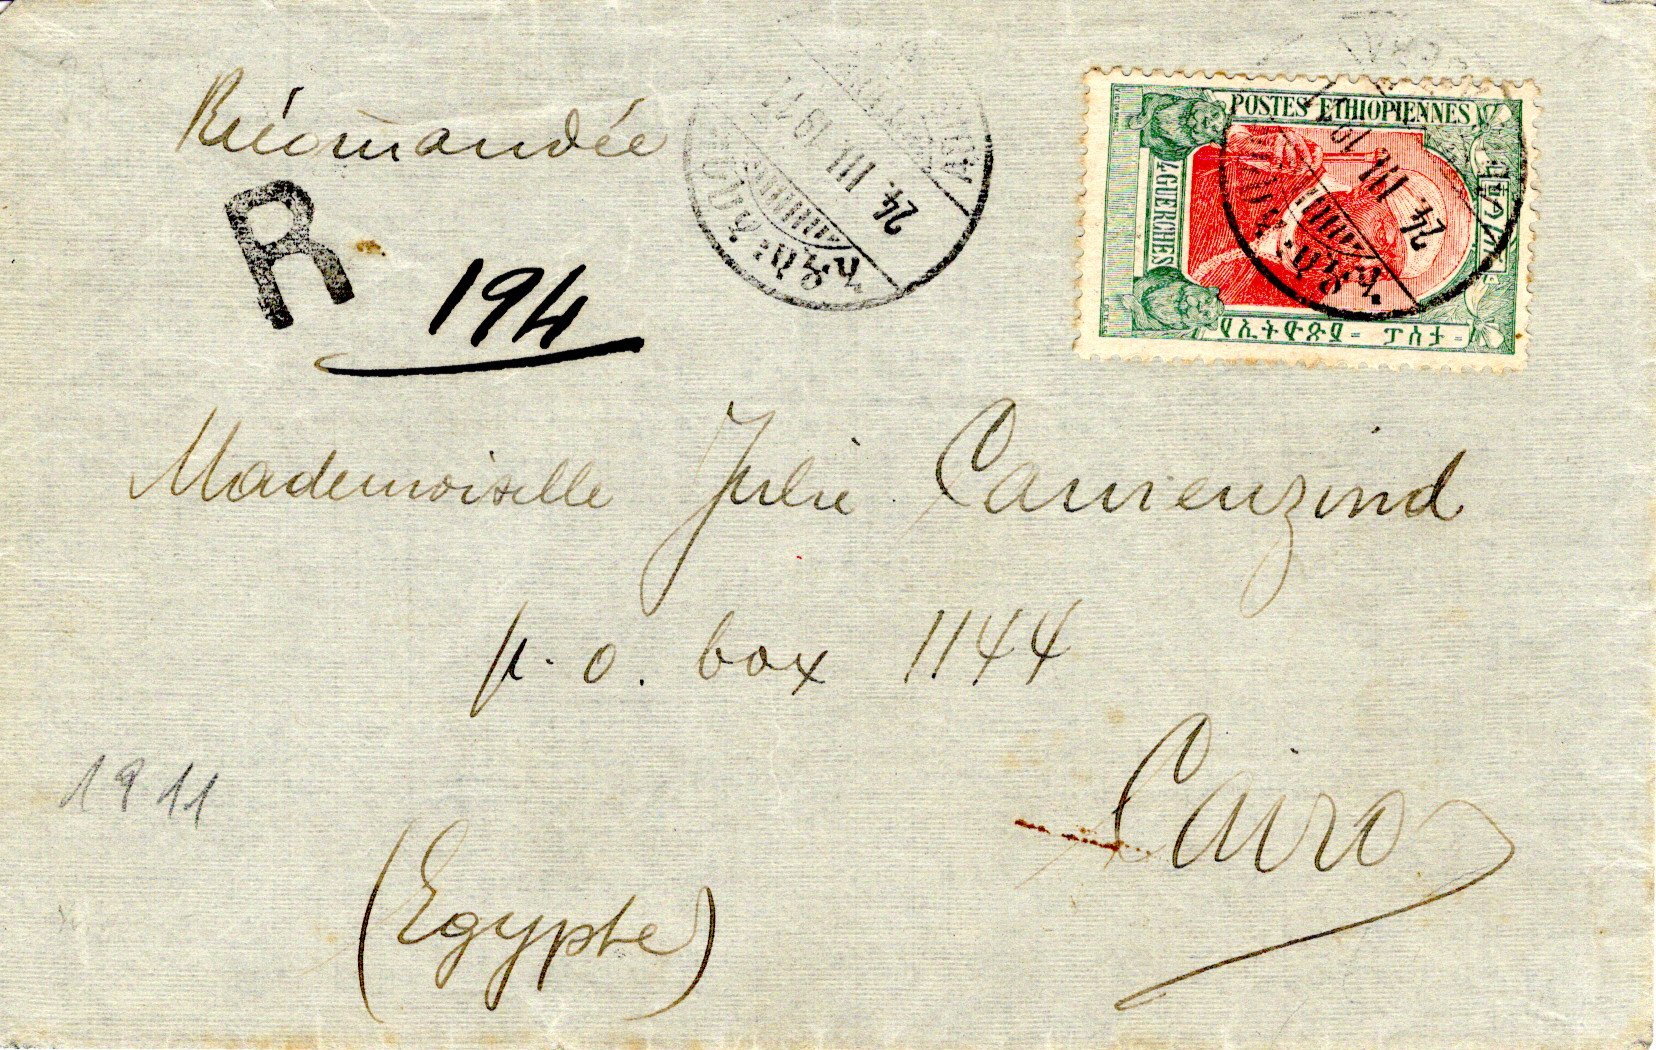 Récomandée
R
194
24. III 19 11
POSTES ETHIOPIENNES
4 GUERCHES
24. III 19
Mademoiselle Julie Camenzind
p. o. box 1144
Cairo
(Egypte)
1911